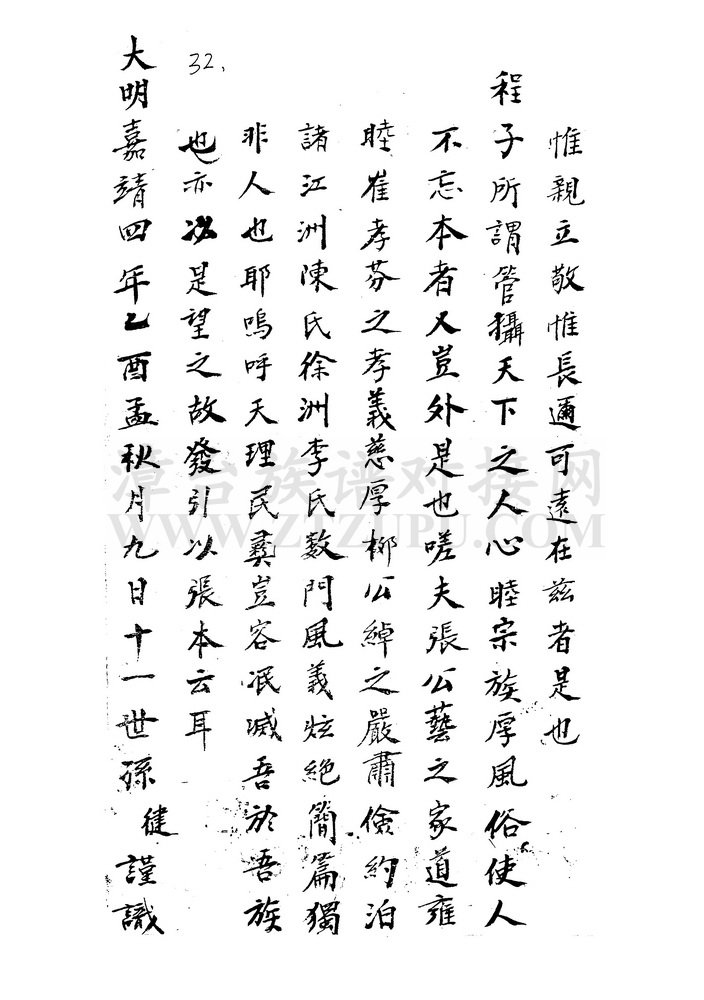 惟親立敬惟長邇可遠在茲者是也
程子所謂管攝天下之人心睦宗族厚風俗使人
不忘本者又豈外是也嗟夫張公藝之家道雍
睦崔孝芬之孝義慈厚柳公綽之嚴肅儉約泊
諸江洲陳氏徐洲李氏数門風義炫絶簡篇獨
非人也耶嗚呼天理民彝豈容泯滅吾於吾族
也亦以是望之故發引以張本云耳
大明嘉靖四年乙酉孟秋月九日十一世孫 健謹識
32.
漳台族谱对接网
WWW.ZTZUPU.COM